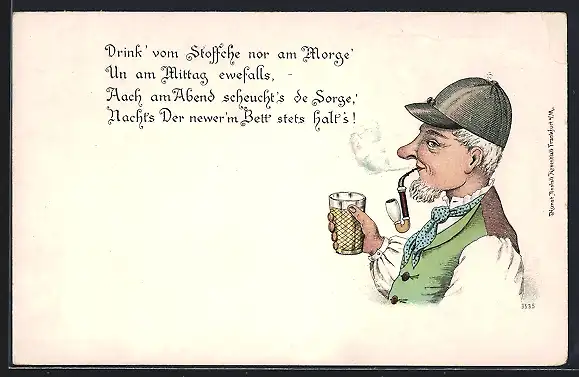 Drink' vom Stoffche nor am Morge'
Un am Mittag ewefalls, -
Aach am Abend scheucht's de Sorge,'
Nacht's Der newer'm Bett' stets halt's!
Frankfurt a/M.
3535